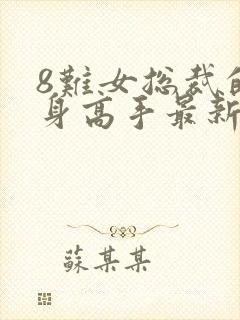 8難女总裁的
身高手最新
蘇某某